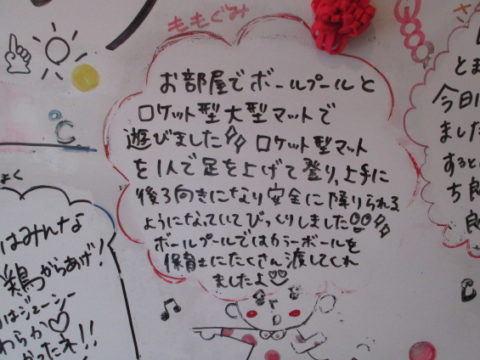 ももぐみ
お部屋でボールプールと
ロケット型大型マットで
遊びました ロケット型マット
を1人で足を上げて登り、上手に
後ろ向きになり安全に降りられる
ようになっていてびっくりしました!!
ボールプールではカラーボールを
保育士にたくさん渡してくれ
ましたよ
℃
はみんな
鶏からあげ!
はジューシー
わらか♡
かったネ!!
と
今日
ました
すると
ち